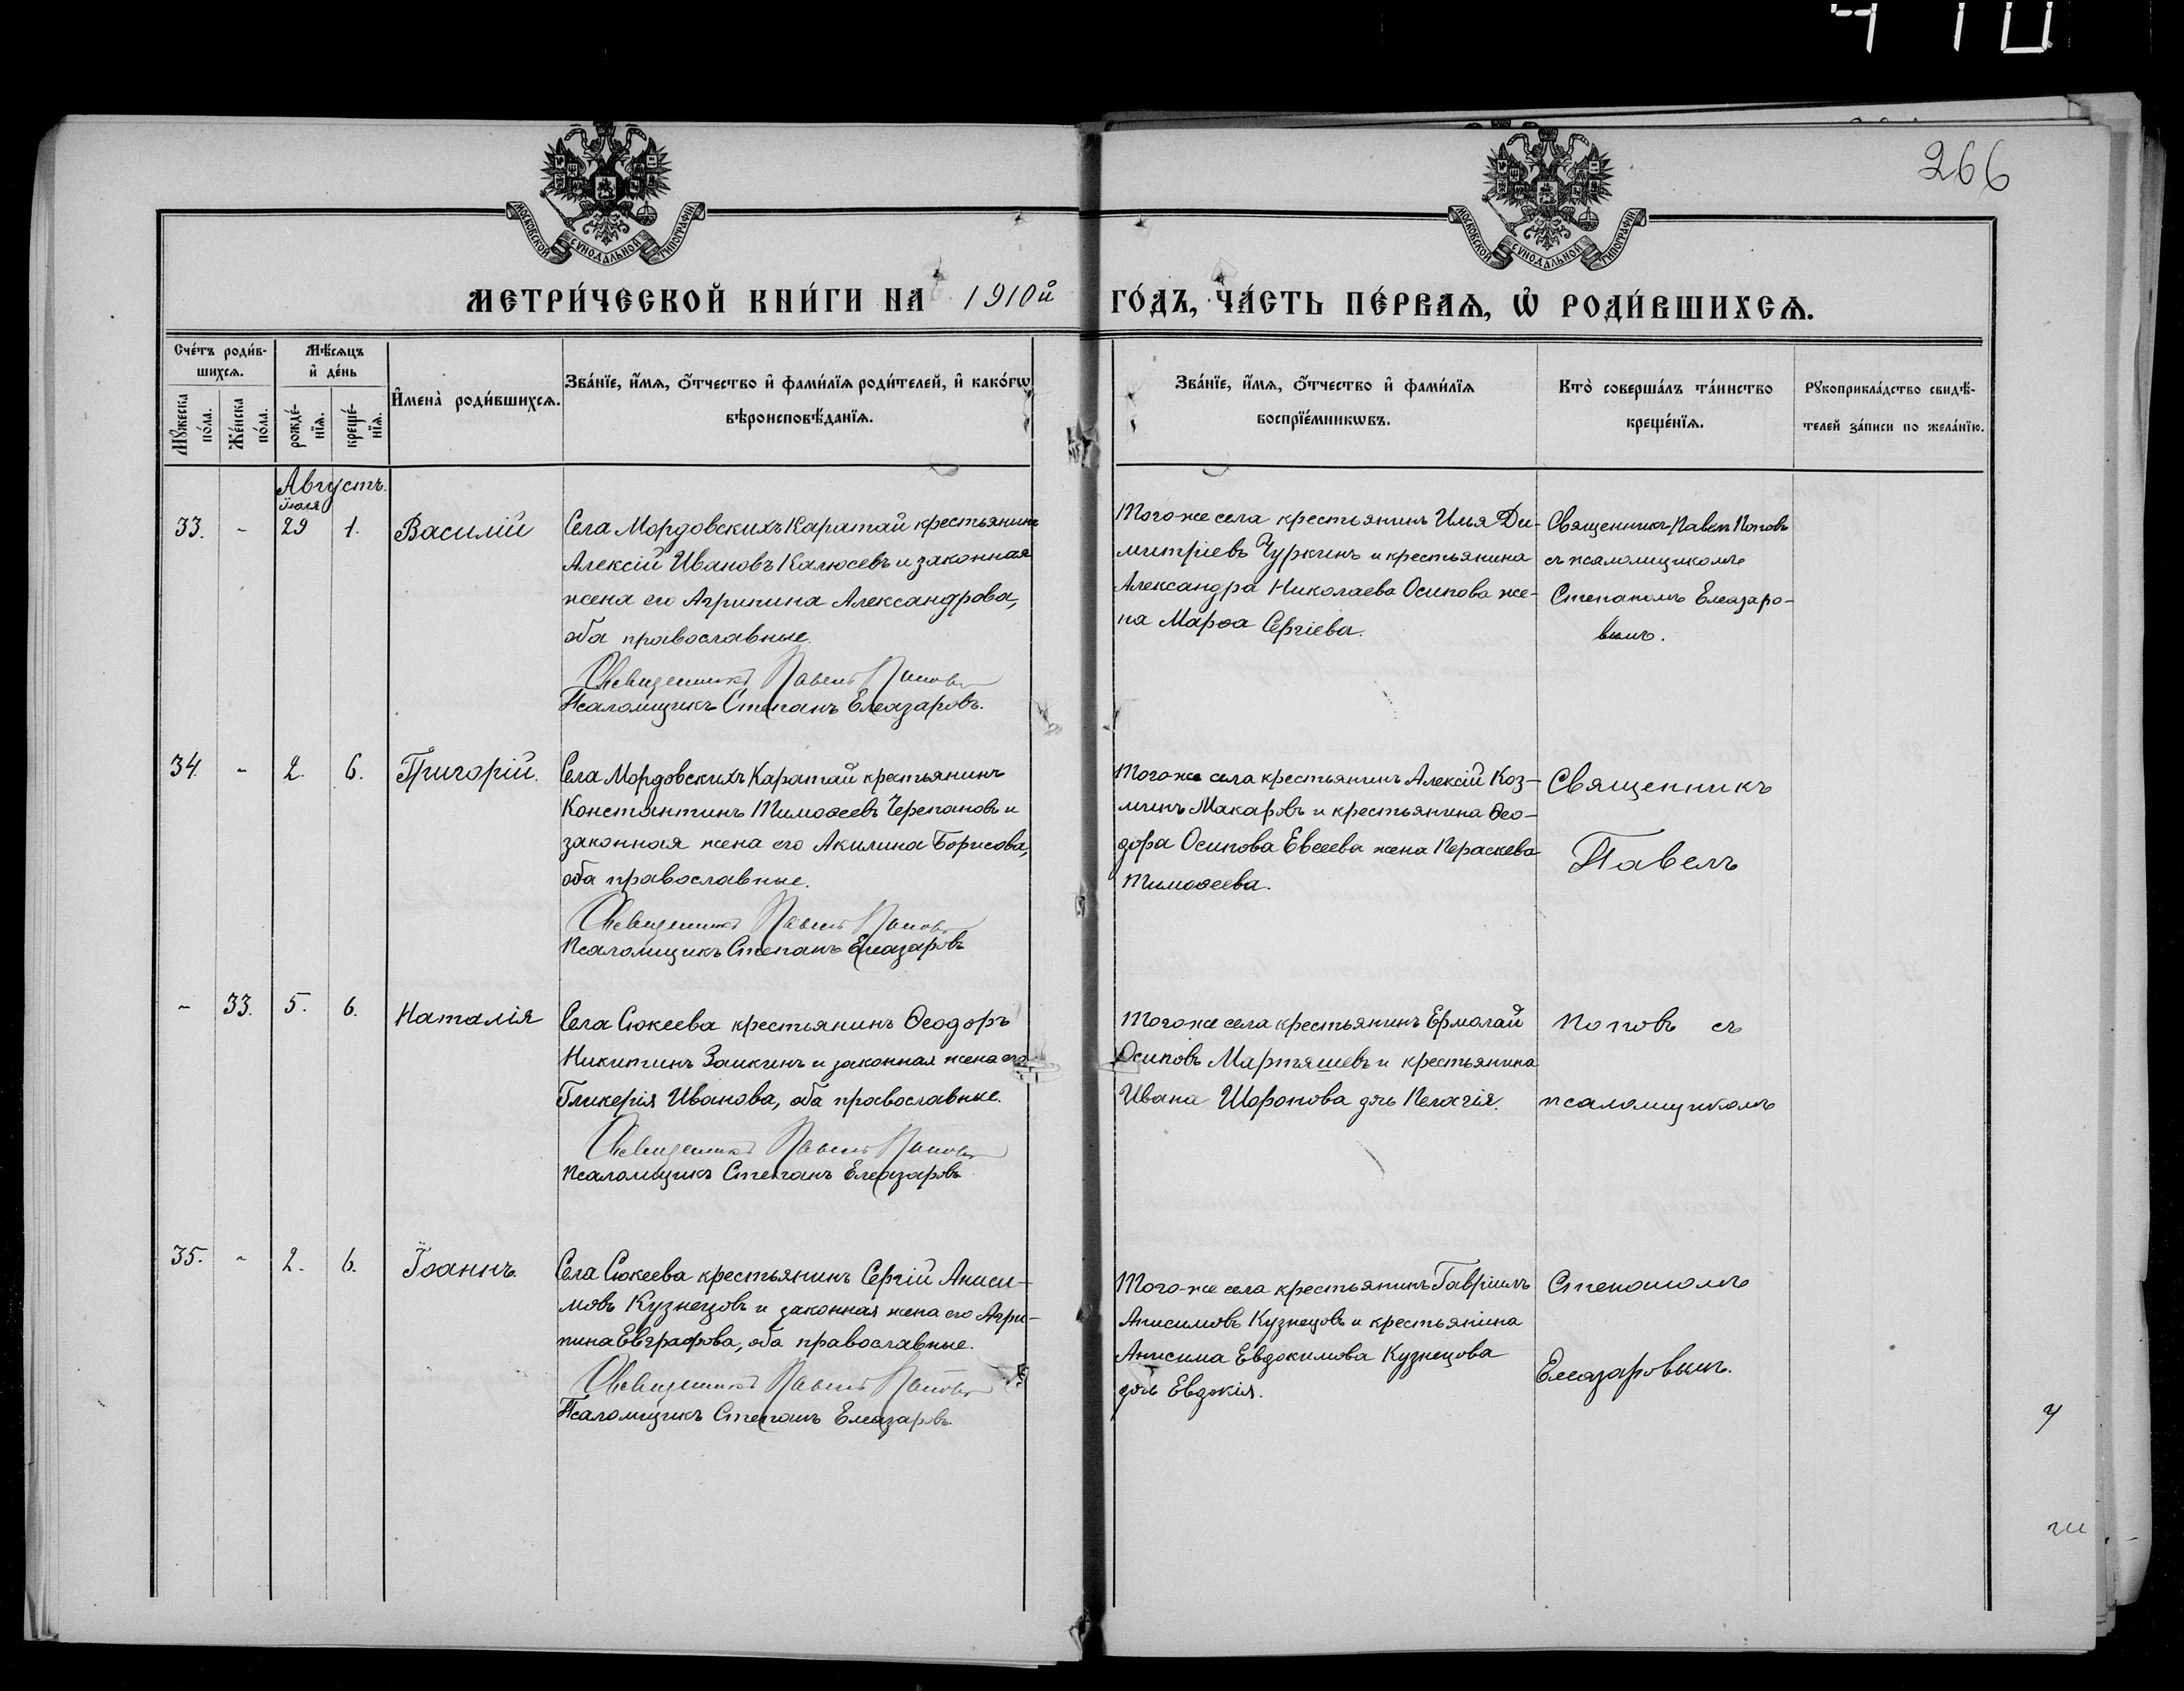 4 10
266
МОСКОВСКОЙ СѴНОДАЛЬНОЙ ТИПОГРАФІИ
МОСКОВСКОЙ СѴНОДАЛЬНОЙ ТИПОГРАФІИ
МЕТРИ́ЧЕСКОЙ КНИ́ГИ НА 1910й ГО́ДЪ, ЧА́СТЬ ПЕ́РВАѦ, Ѽ РОДИ́ВШИХСѦ.
Сче́тъ роди́в-
шихсѧ.
Мꙋжеска по́ла.
Же́нска по́ла.
Мѣ́сѧцъ
и҆ де́нь
рожде́-
нїѧ.
креще́-
нїѧ.
И҆мена̀ роди́вшихсѧ.
Зва́нїе, и҆́мѧ, ѻ҆́тчество и҆ фами́лїѧ роди́телей, и҆ како́гѡ
вѣроисповѣ́данїѧ.
Зва́нїе, и҆́мѧ, ѻ҆́тчество и҆ фами́лїѧ
воспрїе́мникѡвъ.
Кто̀ соверша́лъ та́инство
креще́нїѧ.
Рꙋкоприкла́дство свидѣ́-
телей за́писи по жела́нїю.
Августъ.
іюля
33. - 29 1. Василій
Села Мордовскихъ Каратай крестьянинъ
Алексій Ивановъ Калюсевъ и законная
жена его Агрипина Александрова,
оба православные.
Священникъ Павелъ Поповъ
Псаломщикъ Степанъ Елеазаровъ.
Того же села крестьянинъ Илья Ди-
митріевъ Чуркинъ и крестьянина
Александра Николаева Осипова же-
на Марѳа Сергіева.
Священникъ Павелъ Поповъ
съ псаломщикомъ
Степаномъ Елеазаро-
вымъ.
34. - 2. 6. Григорій.
Села Мордовскихъ Каратай крестьянинъ
Константинъ Тимоѳеевъ Черепановъ и
законная жена его Акилина Борисова,
оба православные.
Священникъ Павелъ Поповъ
Псаломщикъ Степанъ Елеазаровъ
Того же села крестьянинъ Алексій Коз-
минъ Макаровъ и крестьянина Ѳео-
дора Осипова Евсеева жена Параскева
Тимоѳеева.
Священникъ
Павелъ
- 33. 5. 6. Наталія
Села Сюкеева крестьянинъ Ѳеодоръ
Никитинъ Заикинъ и законная жена его
Гликерія Иванова, оба православные.
Священникъ Павелъ Поповъ
Псаломщикъ Степанъ Елеазаровъ
Того же села крестьянинъ Ермолай
Осиповъ Мартяшевъ и крестьянина
Ивана Шоронова дочь Пелагія.
Поповъ съ
псаломщикомъ
35. - 2. 6. Іоаннъ.
Села Сюкеева крестьянинъ Сергій Аниси-
мовъ Кузнецовъ и законная жена его Агри-
пина Евграфова, оба православные.
Священникъ Павелъ Поповъ
Псаломщикъ Степанъ Елеазаровъ.
Того-же села крестьянинъ Гавріилъ
Анисимовъ Кузнецовъ и крестьянина
Анисима Евдокимова Кузнецова
дочь Евдокія.
Степаномъ
Елеазаровымъ.